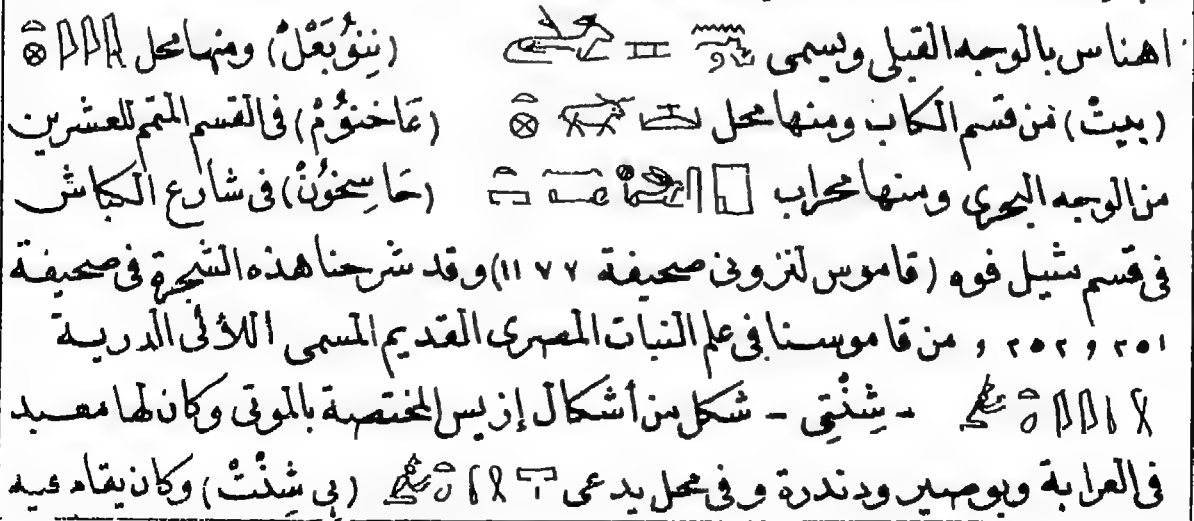 اهناس بالوجه القبلى ويسمى (نِنوُ بَعْلْ) ومنها محل
(بيتْ) من قسم الكاب ومنها محل (عَاخنوُمْ) فى القسم المتمم للعشرين
من الوجه البحرى ومنها محراب (حَا سِخوُنْ) فى شارع الكباش
فى قسم مثيل فوه (قاموس لنزونى صحيفة ١١٧٧) وقد شرحنا هذه الشجرة فى صحيفة
٢٥١ و ٢٥٢ و من قاموسنا فى علم النباتات المصرى القديم المسمى اللآلى الدرية
- شِنْتِى - شكل من أشكال إزيس المختصة بالموتى وكان لها معبد
فى العرابة وبوصير ودندرة وفى محل يدعى (بِى شِنْتْ) وكان يقام فيه